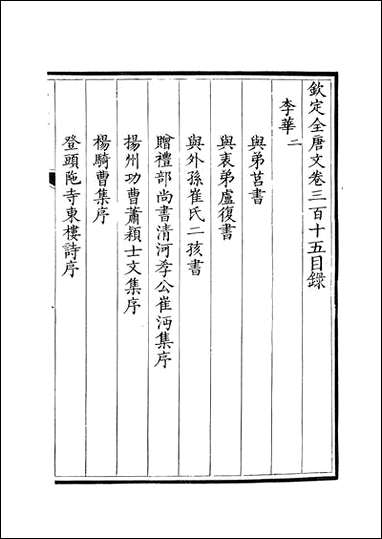 欽定全唐文卷三百十五目録
李華二
與弟莒書
與表弟盧復書
與外孫崔氏二孩書
贈禮部尚書清河孝公崔沔集序
揚州功曹蕭穎士文集序
楊騎曹集序
登頭陁寺東樓詩序